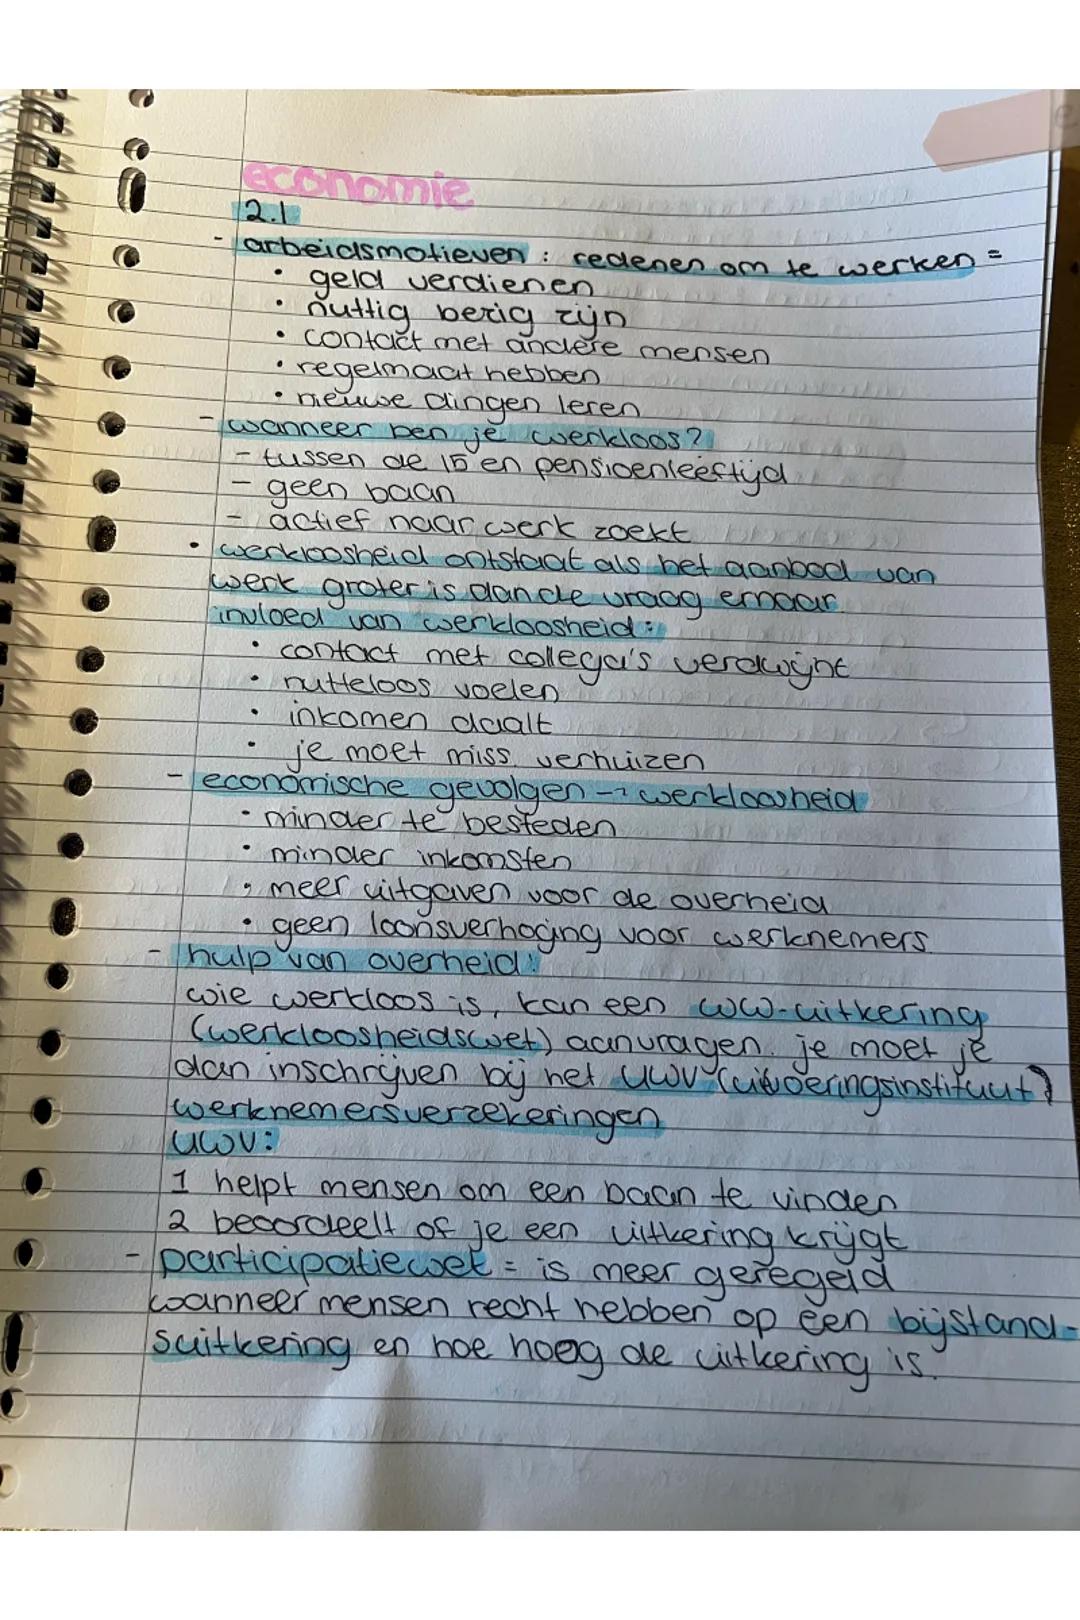 economie
2.1
- arbeidsmotieven : redenen om te werken =
• geld verdienen
• nuttig bezig zijn
• contact met andere mensen
• regelmaat hebben
• nieuwe dingen leren
- wanneer ben je werkloos?
- tussen de 15 en pensioenleeftijd
- geen baan
- actief naar werk zoekt
• werkloosheid ontstaat als het aanbod van
werk groter is dan de vraag ernaar.
invloed van werkloosheid:
• contact met collega's verdwijnt
• nutteloos voelen
• inkomen daalt
• je moet miss. verhuizen
- economische gevolgen → werkloosheid
• minder te besteden
• minder inkomsten
• meer uitgaven voor de overheid
• geen loonsverhoging voor werknemers.
- hulp van overheid:
wie werkloos is, kan een ww-uitkering
(werkloosheidswet) aanvragen. je moet je
dan inschrijven bij het UWV (uitvoeringsinstituut)
werknemersverzekeringen
UWV:
1 helpt mensen om een baan te vinden
2 beoordeelt of je een uitkering krijgt
- participatiewet = is meer geregeld
wanneer mensen recht hebben op een bijstand-
suitkering en hoe hoog de uitkering is.